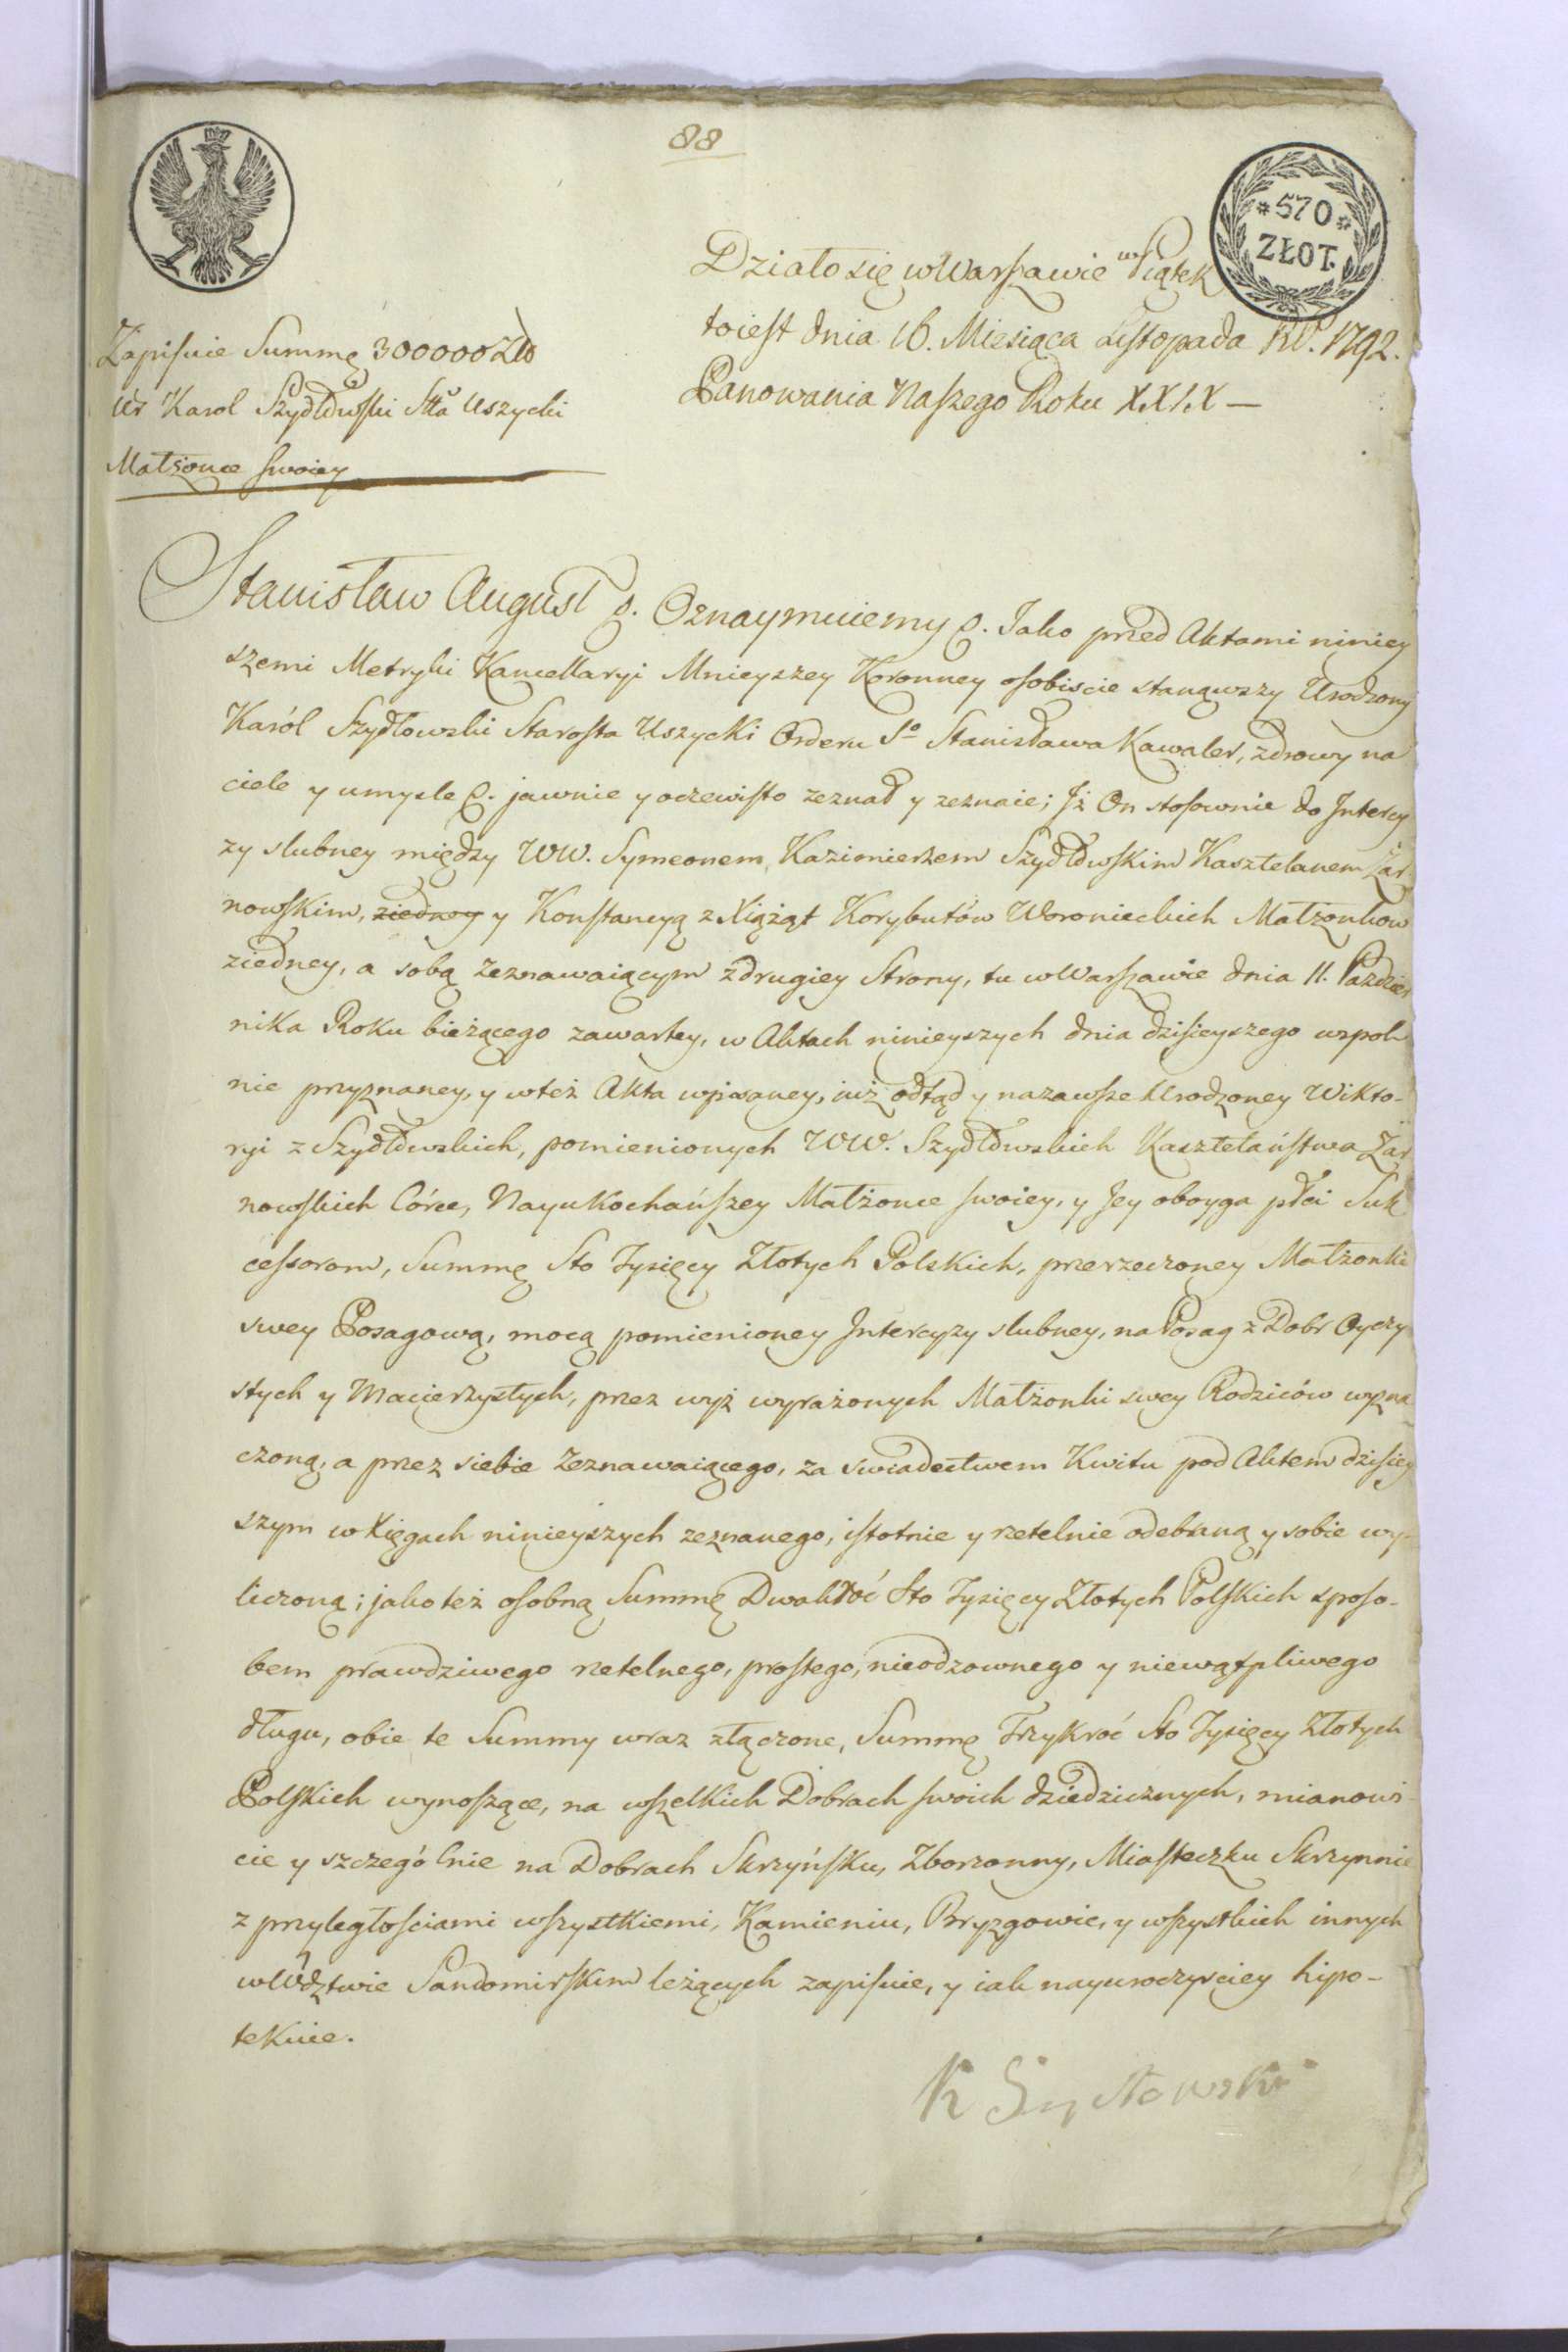 88
* 570 *
ZŁOT.
Działo się w Warszawie w Piątek
toiest dnia 16. Miesiąca Listopada RP. 1792.
Panowania Naszego Roku XXIX —
Zapisuie Summę 300000 Zło
Ur Karol Szydłowski Stta Uszycki
Małżonce swoiey
Stanisław August &. Oznaymuiemy &. Jako przed Aktami niniey
szemi Metryki Kancellaryi Mnieyszey Koronney osobiscie stanąwszy Urodzony
Karól Szydłowski Starosta Uszycki Orderu So Stanisława Kawaler, zdrowy na
ciele y umysle &. jawnie y oczewisto zeznał y zeznaie; Jż On stosownie do Jntercy
zy slubney między WW. Symeonem Kazimierzem Szydłowskim Kasztelanem Żar
nowskim, ziedney y Konstancyą z Xiążąt Korybutów Woronieckich Małżonkow
ziedney, a sobą zeznawaiącym z drugiey Strony, tu w Warszawie dnia 11. Paździer
nika Roku bieżącego zawartey, w Aktach ninieyszych dnia dzisieyszego wspol
nie przyznaney, y wteż Akta wpisaney, iuż odtąd y nazawsze Urodzoney Wikto-
ryi z Szydłowskich, pomienionych WW. Szydłowskich Kasztelaństwa Żar
nowskich Córce, Nayukochańszey Małżonce swoiey, y Jey oboyga płci Suk
cessorom, Summę Sto Tysięcy Złotych Polskich, przerzeczoney Małżonki
swey Posagową, mocą pomienioney Jntercyzy slubney, na Posag z Dobr Oyczy
stych y Macierzystych, przez wyż wyrażonych Małżonki swey Rodziców wyzna
czoną, a przez siebie zeznawaiącego, za swiadectwem Kwitu pod Aktem dzisiey
szym w Xięgach ninieyszych zeznanego, istotnie y rzetelnie odebraną y sobie wy-
liczoną; jako też osobną Summę Dwakroć Sto Tysięcy Złotych Polskich sposo-
bem prawdziwego rzetelnego, prostego, nieodzownego y niewątpliwego
długu, obie te Summy wraz złączone, Summę Trzykroć Sto Tysięcy Złotych
Polskich wynoszące, na wszelkich Dobrach swoich dziedzicznych, mianowi-
cie y szczególnie na Dobrach Skrzyńsku, Zborzonny, Miasteczku Skrzynnie
z przyległościami wszystkiemi, Kamieniu, Bryzgowie, y wszystkich innych
w Wdztwie Sandomirskim leżących zapisuie, y iak nayuroczysciey hipo-
tekuie.
K Szydłowski